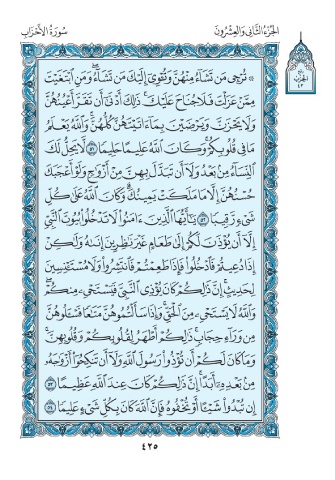 الجزء الثاني والعشرون
سورة الأحزاب
الحزب
٤٣
۞ تُرْجِي مَن تَشَآءُ مِنْهُنَّ وَتُـْٔوِيٓ إِلَيْكَ مَن تَشَآءُۖ وَمَنِ ٱبْتَغَيْتَ
مِمَّنْ عَزَلْتَ فَلَا جُنَاحَ عَلَيْكَۚ ذَٰلِكَ أَدْنَىٰٓ أَن تَقَرَّ أَعْيُنُهُنَّ
وَلَا يَحْزَنَّ وَيَرْضَيْنَ بِمَآ ءَاتَيْتَهُنَّ كُلُّهُنَّۚ وَٱللَّهُ يَعْلَمُ
مَا فِي قُلُوبِكُمْۚ وَكَانَ ٱللَّهُ عَلِيمًا حَلِيمًا ٥١ لَّا يَحِلُّ لَكَ
ٱلنِّسَآءُ مِنۢ بَعْدُ وَلَآ أَن تَبَدَّلَ بِهِنَّ مِنْ أَزْوَٰجٍ وَلَوْ أَعْجَبَكَ
حُسْنُهُنَّ إِلَّا مَا مَلَكَتْ يَمِينُكَۗ وَكَانَ ٱللَّهُ عَلَىٰ كُلِّ
شَيْءٍ رَّقِيبًا ٥٢ يَٰٓأَيُّهَا ٱلَّذِينَ ءَامَنُوا۟ لَا تَدْخُلُوا۟ بُيُوتَ ٱلنَّبِيِّ
إِلَّآ أَن يُؤْذَنَ لَكُمْ إِلَىٰ طَعَامٍ غَيْرَ نَٰظِرِينَ إِنَىٰهُ وَلَٰكِنْ
إِذَا دُعِيتُمْ فَٱدْخُلُوا۟ فَإِذَا طَعِمْتُمْ فَٱنتَشِرُوا۟ وَلَا مُسْتَـْٔنِسِينَ
لِحَدِيثٍۚ إِنَّ ذَٰلِكُمْ كَانَ يُؤْذِي ٱلنَّبِيَّ فَيَسْتَحْيِۦ مِنكُمْۖ
وَٱللَّهُ لَا يَسْتَحْيِۦ مِنَ ٱلْحَقِّۚ وَإِذَا سَأَلْتُمُوهُنَّ مَتَٰعًا فَسْـَٔلُوهُنَّ
مِن وَرَآءِ حِجَابٍۚ ذَٰلِكُمْ أَطْهَرُ لِقُلُوبِكُمْ وَقُلُوبِهِنَّۚ
وَمَا كَانَ لَكُمْ أَن تُؤْذُوا۟ رَسُولَ ٱللَّهِ وَلَآ أَن تَنكِحُوٓا۟ أَزْوَٰجَهُۥ
مِنۢ بَعْدِهِۦٓ أَبَدًاۚ إِنَّ ذَٰلِكُمْ كَانَ عِندَ ٱللَّهِ عَظِيمًا ٥٣
إِن تُبْدُوا۟ شَيْـًٔا أَوْ تُخْفُوهُ فَإِنَّ ٱللَّهَ كَانَ بِكُلِّ شَيْءٍ عَلِيمًا ٥٤
٤٢٥